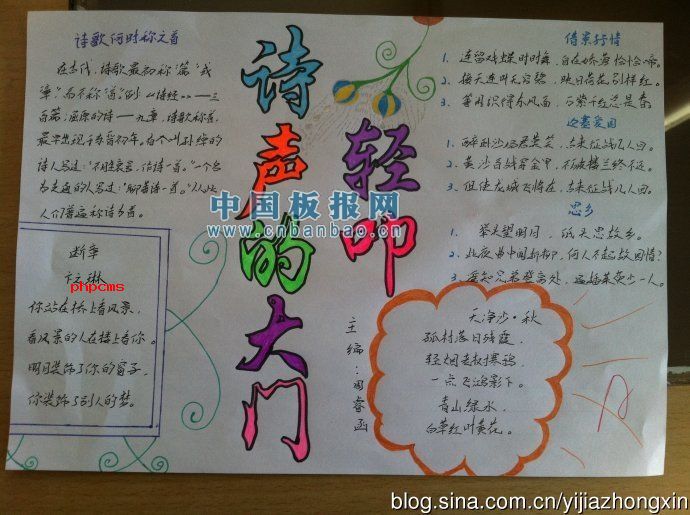 诗歌何时称之首
在古代，诗歌最初称"篇"或
"章"而不称"首"。例《诗经》——三
百篇；屈原的诗——九章，诗歌称首，
最早出现于东晋初年。有个叫孙绰的
诗人写过："不胜哀思，作诗一首。"一个名
为支遁的人写过："聊著诗一首。"从此
人们普遍称诗为首。
断章
卞之琳
phpcms
你站在桥上看风景，
看风景的人在楼上看你。
明月装饰了你的窗子，
你装饰了别人的梦。
轻叩
诗声的大门
中国板报网
www.cnbanbao.cn
主编：周睿函
借景抒情
1. 连留戏蝶时时舞，自在娇莺恰恰啼。
2. 接天莲叶无穷碧，映日荷花别样红。
3. 等闲识得东风面，万紫千红总是春
边塞爱国
1. 醉卧沙场君莫笑，古来征战几人回。
2. 黄沙百战穿金甲，不破楼兰终不还。
3. 但使龙城飞将在，古来征战几人回。
思乡
1. 举头望明月，低头思故乡。
2. 此夜曲中闻折柳，何人不起故园情？
3. 遥知兄弟登高处，遍插茱萸少一人。
天净沙·秋
孤村落日残霞，
轻烟老树寒鸦，
一点飞鸿影下。
青山绿水，
白草红叶黄花。
blog.sina.com.cn/yijiazhongxin